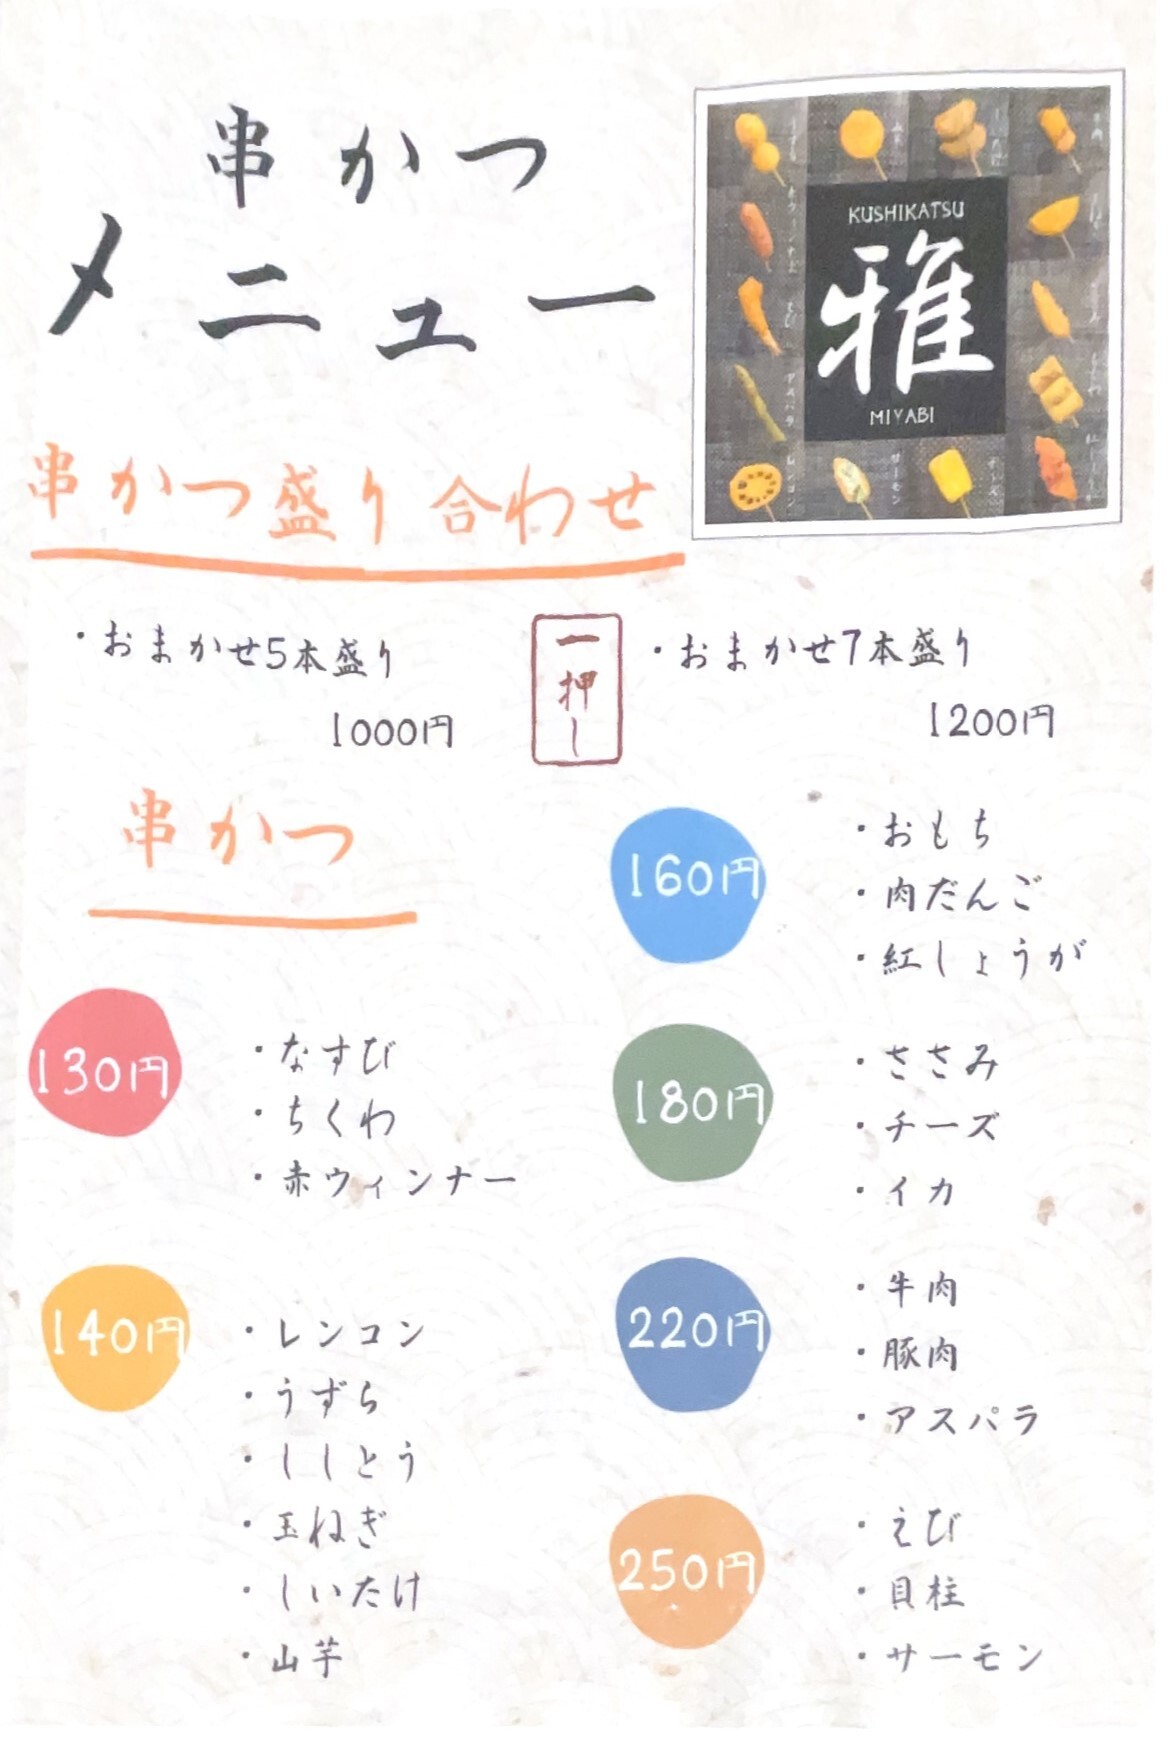 串かつ
メニュー
KUSHIKATSU
雅
MIYABI
アスパラ
レンコン
サーモン
チーズ
串かつ盛り合わせ
・おまかせ5本盛り
1000円
一押し
・おまかせ7本盛り
1200円
串かつ
130円
・なすび
・ちくわ
・赤ウィンナー
140円
・レンコン
・うずら
・ししとう
・玉ねぎ
・しいたけ
・山芋
160円
・おもち
・肉だんご
・紅しょうが
180円
・ささみ
・チーズ
・イカ
220円
・牛肉
・豚肉
・アスパラ
250円
・えび
・貝柱
・サーモン